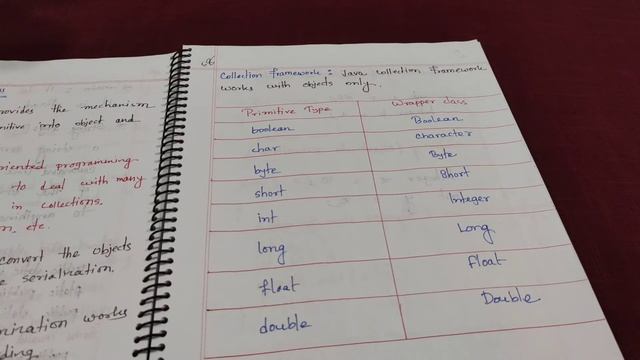 rovides the mechanism
into object and
oriented programming
to deal with many
in collections.
etc.
convert the objects
serialization.
works
Collection framework : Java collection framework
works with objects only.
Primitive Type Wrapper class
boolean Boolean
char Character
byte Byte
short Short
int Integer
long Long
float Float
double Double